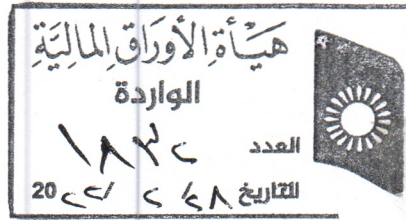 هَيْأَةِ الأَوْرَاقِ المَالِيَّةِ
الواردة
العدد ١٨٣٢
التاريخ ٢٨ / ٢ / 20٢٢